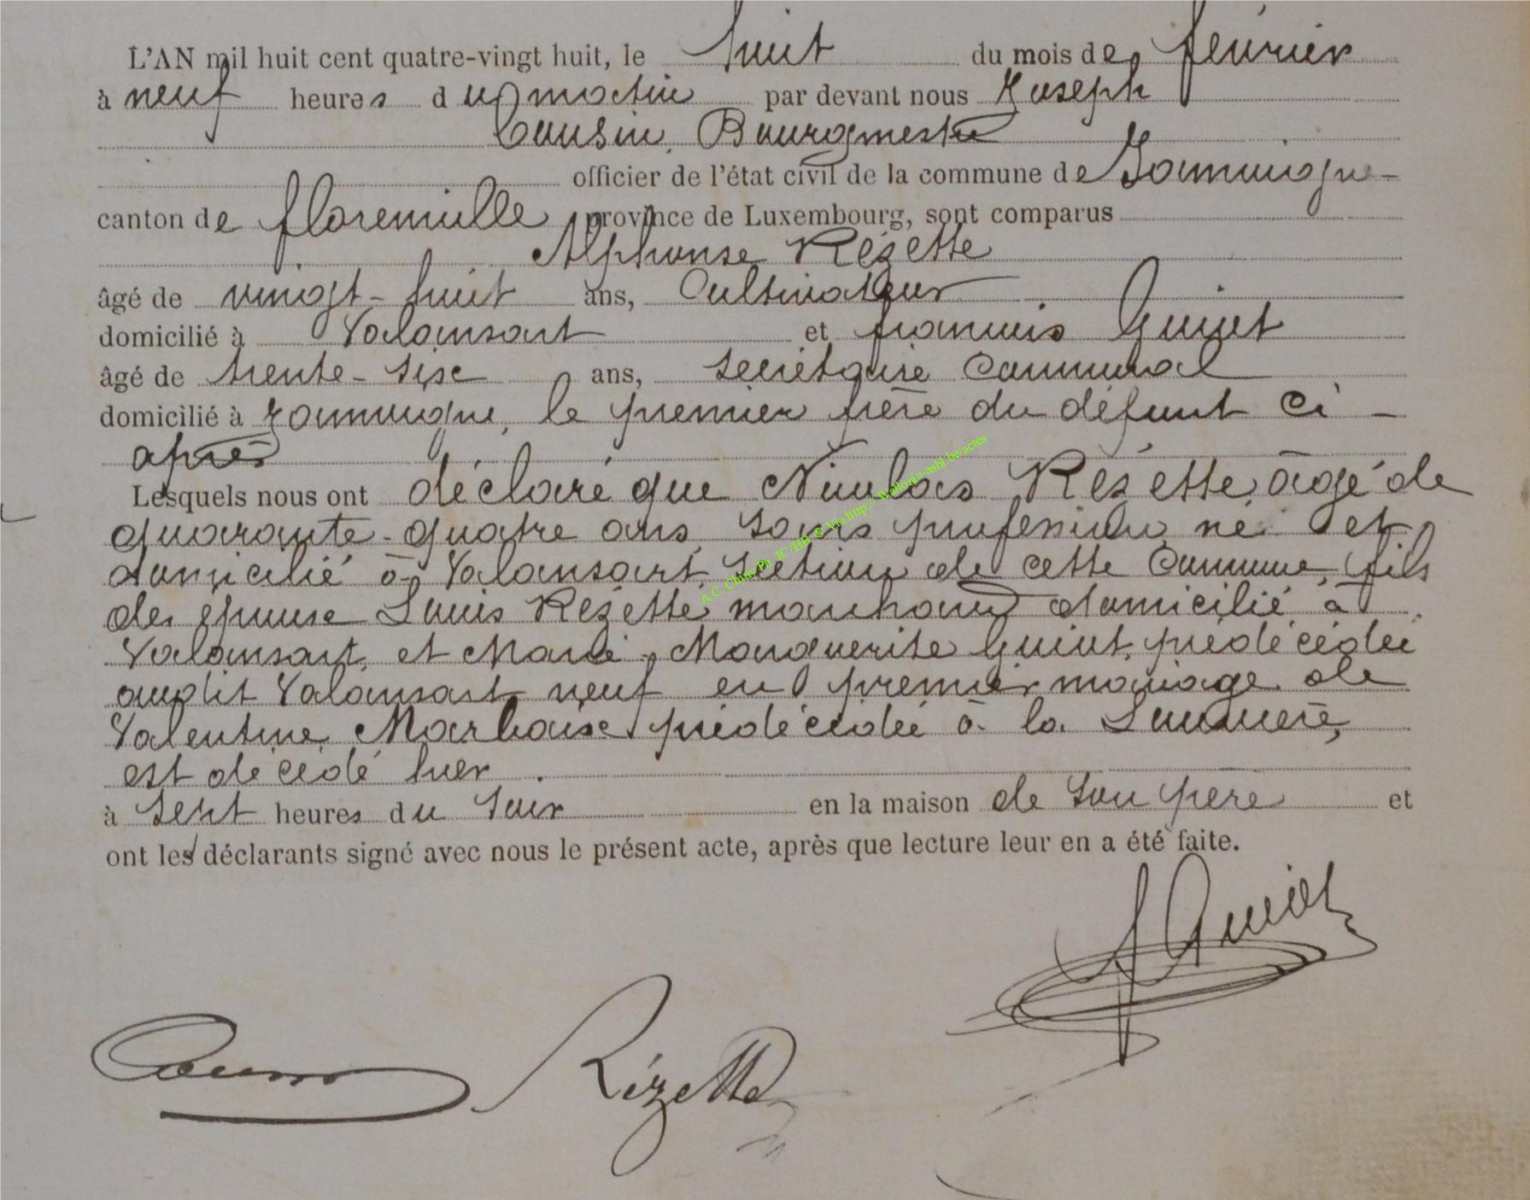 L'AN mil huit cent quatre-vingt huit, le huit du mois de février
à neuf heures du matin par devant nous Joseph
Cousin, Bourgmestre
officier de l'état civil de la commune de Jamoigne
canton de florenville province de Luxembourg, sont comparus
Alphonse Rézette
âgé de vingt-huit ans, Cultivateur
domicilié à Valansart et françois Guiot
âgé de trente-six ans, secrétaire Communal
domicilié à Jamoigne, le premier frère du défunt ci-
après
Lesquels nous ont déclaré que Nicolas Rézette, âgé de
quarante-quatre ans, sans profession, né et
domicilié à Valansart, section de cette Commune, fils
des époux Louis Rézette, marchand domicilié à
Valansart, et Marie, Marguerite Guiot, prédécédée
audit Valansart, veuf en premier mariage de
Valentine Marhaise prédécédée à la
est décédé hier.
à sept heures du soir en la maison de son père et
ont les déclarants signé avec nous le présent acte, après que lecture leur en a été faite.
f Guiot
Cousin Rézette